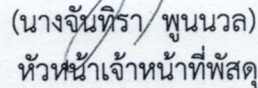 (นางจันทิรา พูนนวล)
หัวหน้าเจ้าหน้าที่พัสดุ